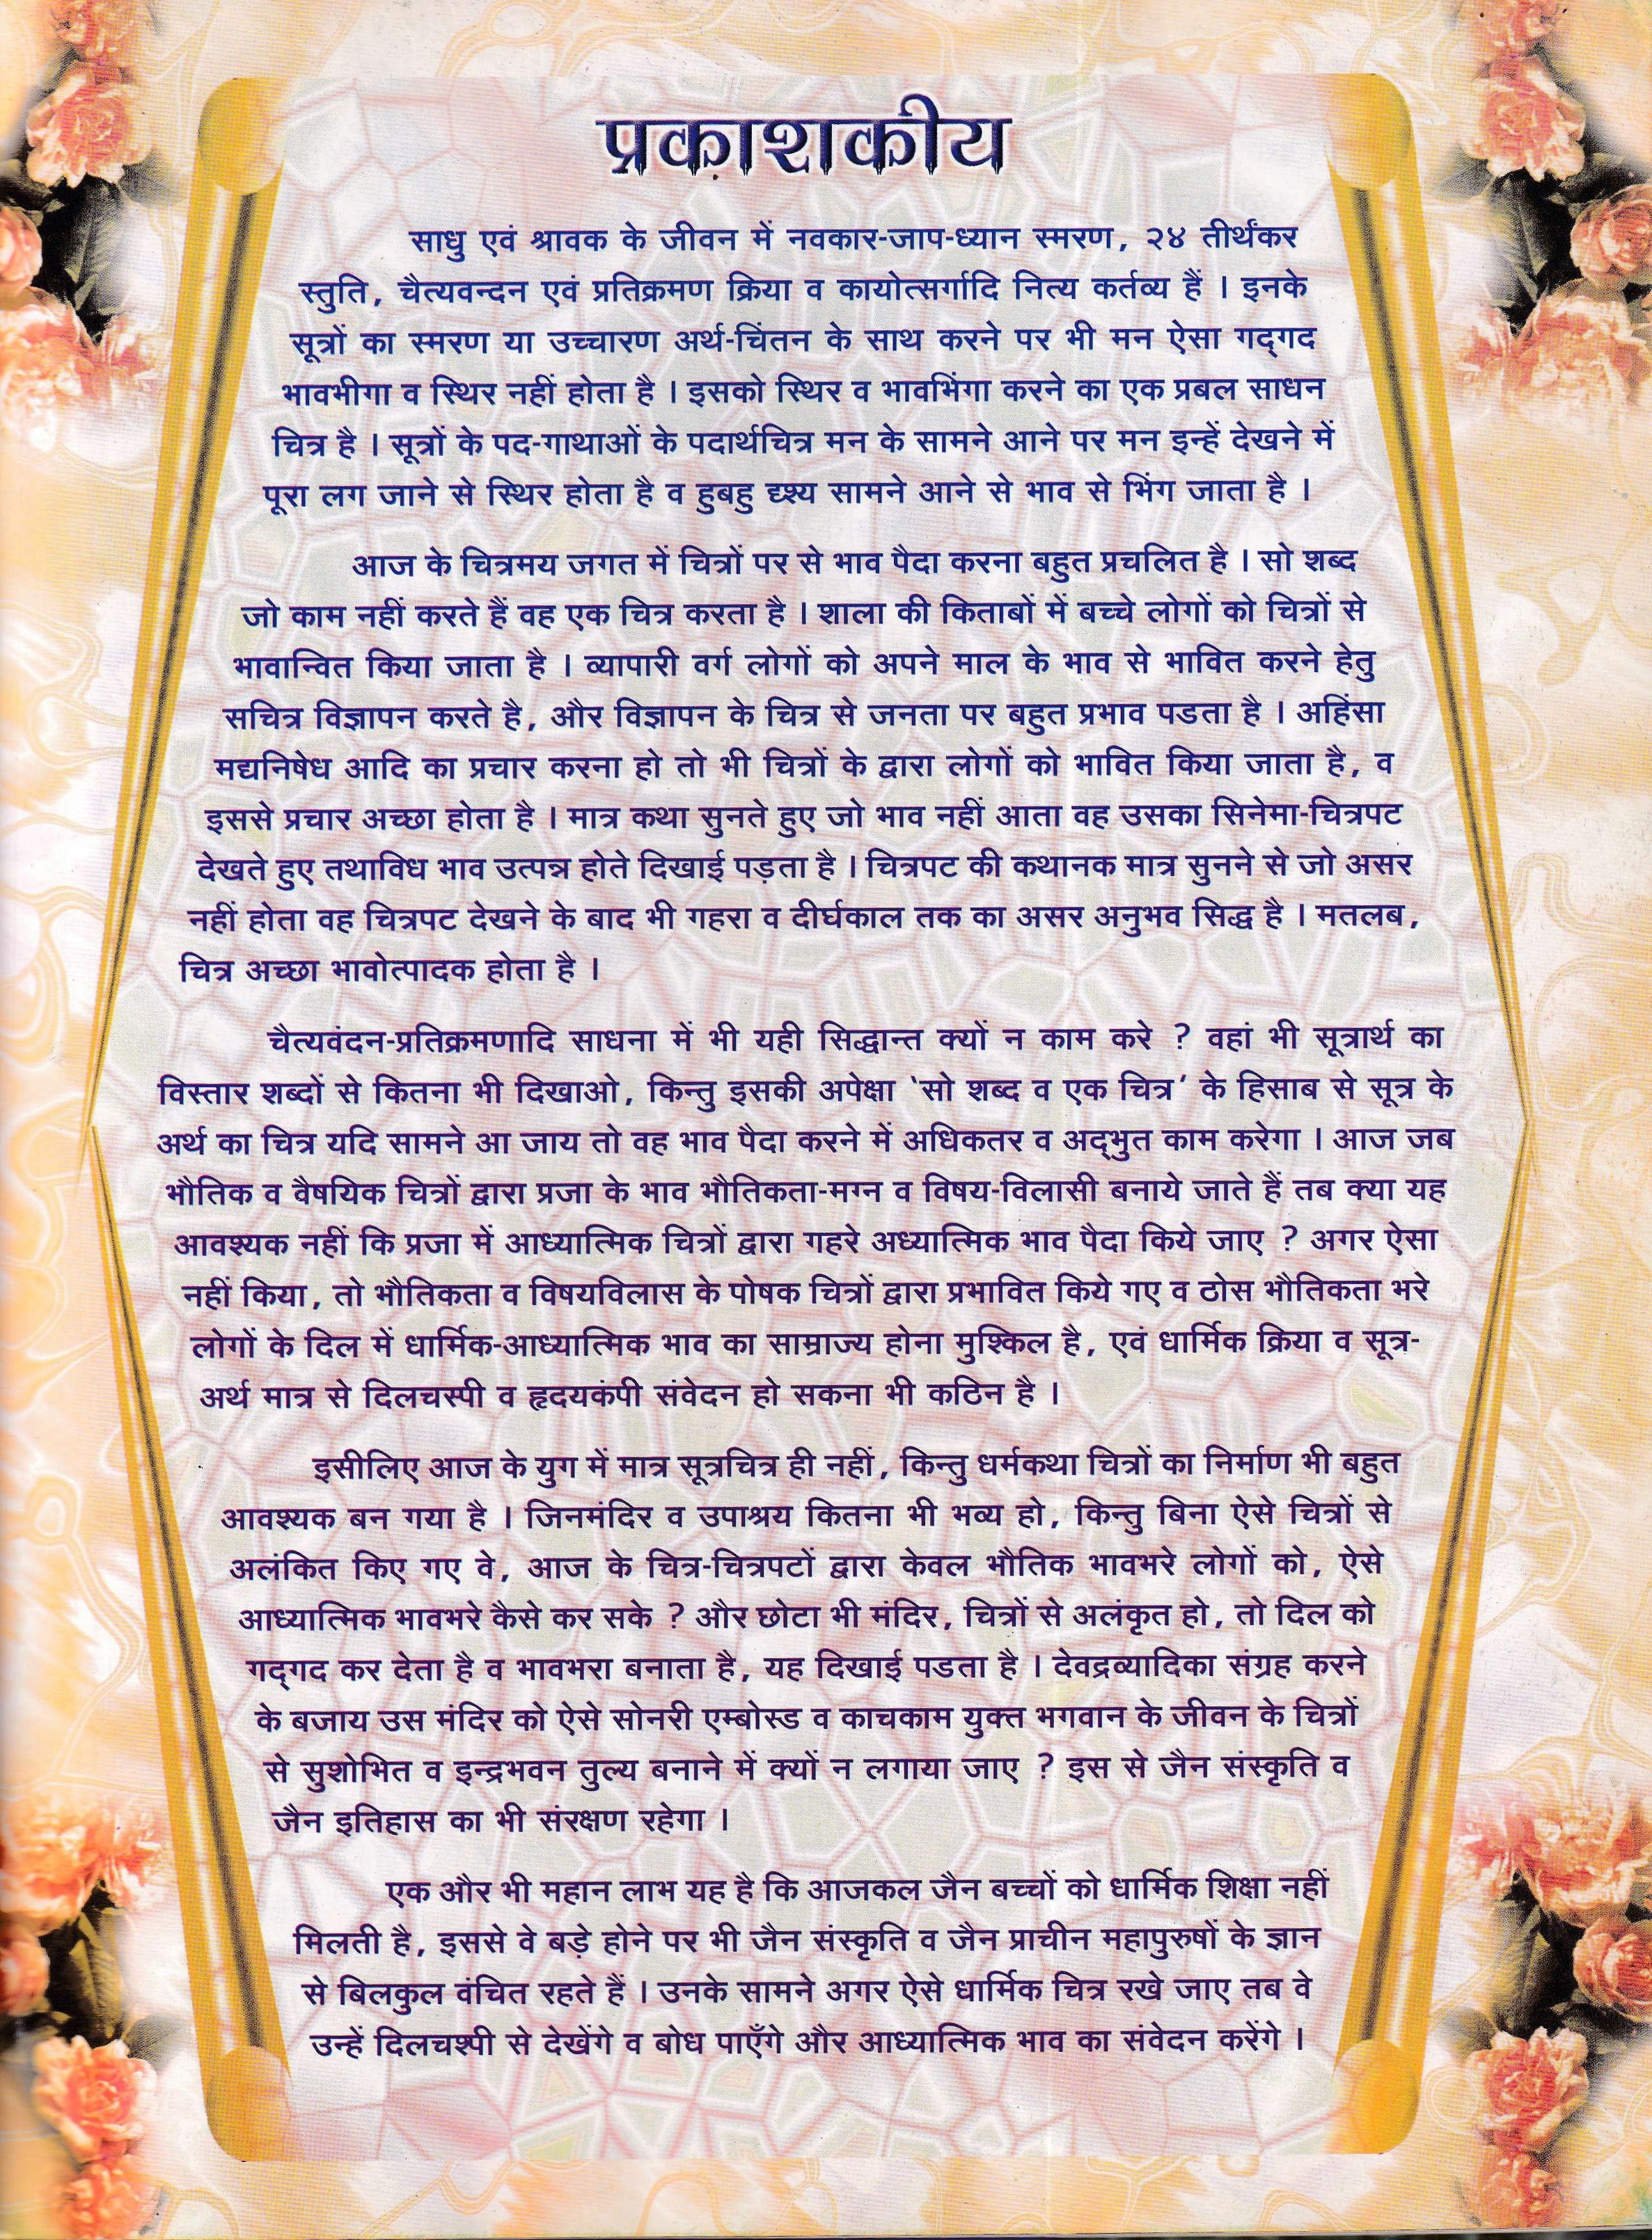 प्रकाशकीय
साधु एवं श्रावक के जीवन में नवकार-जाप-ध्यान स्मरण, २४ तीर्थंकर
स्तुति, चैत्यवन्दन एवं प्रतिक्रमण क्रिया व कायोत्सर्गादि नित्य कर्तव्य हैं । इनके
सूत्रों का स्मरण या उच्चारण अर्थ-चिंतन के साथ करने पर भी मन ऐसा गद्‌गद
भावभीगा व स्थिर नहीं होता है । इसको स्थिर व भावभिंगा करने का एक प्रबल साधन
चित्र है । सूत्रों के पद-गाथाओं के पदार्थचित्र मन के सामने आने पर मन इन्हें देखने में
पूरा लग जाने से स्थिर होता है व हुबहु द्दश्य सामने आने से भाव से भिंग जाता है ।
आज के चित्रमय जगत में चित्रों पर से भाव पैदा करना बहुत प्रचलित है । सो शब्द
जो काम नहीं करते हैं वह एक चित्र करता है । शाला की किताबों में बच्चे लोगों को चित्रों से
भावान्वित किया जाता है । व्यापारी वर्ग लोगों को अपने माल के भाव से भावित करने हेतु
सचित्र विज्ञापन करते है, और विज्ञापन के चित्र से जनता पर बहुत प्रभाव पडता है । अहिंसा
मद्यनिषेध आदि का प्रचार करना हो तो भी चित्रों के द्वारा लोगों को भावित किया जाता है, व
इससे प्रचार अच्छा होता है । मात्र कथा सुनते हुए जो भाव नहीं आता वह उसका सिनेमा-चित्रपट
देखते हुए तथाविध भाव उत्पन्न होते दिखाई पड़ता है । चित्रपट की कथानक मात्र सुनने से जो असर
नहीं होता वह चित्रपट देखने के बाद भी गहरा व दीर्घकाल तक का असर अनुभव सिद्ध है । मतलब,
चित्र अच्छा भावोत्पादक होता है ।
चैत्यवंदन-प्रतिक्रमणादि साधना में भी यही सिद्धान्त क्यों न काम करे ? वहां भी सूत्रार्थ का
विस्तार शब्दों से कितना भी दिखाओ, किन्तु इसकी अपेक्षा 'सो शब्द व एक चित्र' के हिसाब से सूत्र के
अर्थ का चित्र यदि सामने आ जाय तो वह भाव पैदा करने में अधिकतर व अद्‌भुत काम करेगा । आज जब
भौतिक व वैषयिक चित्रों द्वारा प्रजा के भाव भौतिकता-मग्न व विषय-विलासी बनाये जाते हैं तब क्या यह
आवश्यक नहीं कि प्रजा में आध्यात्मिक चित्रों द्वारा गहरे अध्यात्मिक भाव पैदा किये जाए ? अगर ऐसा
नहीं किया, तो भौतिकता व विषयविलास के पोषक चित्रों द्वारा प्रभावित किये गए व ठोस भौतिकता भरे
लोगों के दिल में धार्मिक-आध्यात्मिक भाव का साम्राज्य होना मुश्किल है, एवं धार्मिक क्रिया व सूत्र-
अर्थ मात्र से दिलचस्पी व हृदयकंपी संवेदन हो सकना भी कठिन है ।
इसीलिए आज के युग में मात्र सूत्रचित्र ही नहीं, किन्तु धर्मकथा चित्रों का निर्माण भी बहुत
आवश्यक बन गया है । जिनमंदिर व उपाश्रय कितना भी भव्य हो, किन्तु बिना ऐसे चित्रों से
अलंकित किए गए वे, आज के चित्र-चित्रपटों द्वारा केवल भौतिक भावभरे लोगों को, ऐसे
आध्यात्मिक भावभरे कैसे कर सके ? और छोटा भी मंदिर, चित्रों से अलंकृत हो, तो दिल को
गद्‌गद कर देता है व भावभरा बनाता है, यह दिखाई पडता है । देवद्रव्यादिका संग्रह करने
के बजाय उस मंदिर को ऐसे सोनरी एम्बोस्ड व काचकाम युक्त भगवान के जीवन के चित्रों
से सुशोभित व इन्द्रभवन तुल्य बनाने में क्यों न लगाया जाए ? इस से जैन संस्कृति व
जैन इतिहास का भी संरक्षण रहेगा ।
एक और भी महान लाभ यह है कि आजकल जैन बच्चों को धार्मिक शिक्षा नहीं
मिलती है, इससे वे बड़े होने पर भी जैन संस्कृति व जैन प्राचीन महापुरुषों के ज्ञान
से बिलकुल वंचित रहते हैं । उनके सामने अगर ऐसे धार्मिक चित्र रखे जाए तब वे
उन्हें दिलचश्पी से देखेंगे व बोध पाएँगे और आध्यात्मिक भाव का संवेदन करेंगे ।